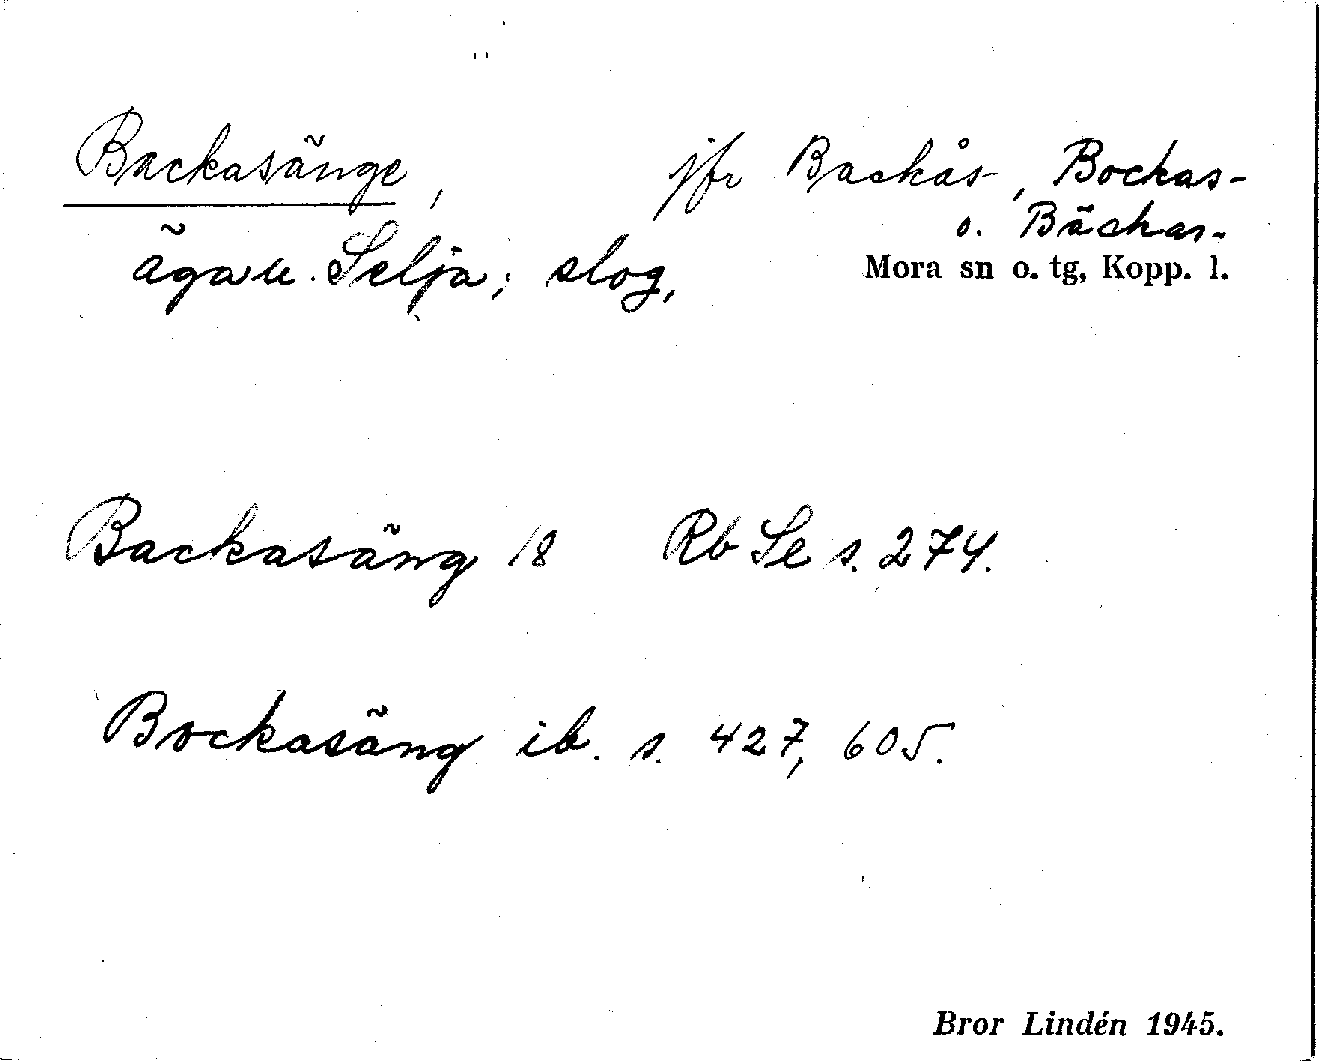 Backasänge, jfr Backås-, Bockas-
o. Bäckas-
ägau. Selja; slog, Mora sn o. tg, Kopp. l.
Backasäng 18 Rb Se s. 274.
Bockasäng ib. s. 427, 605.
Bror Lindén 1945.